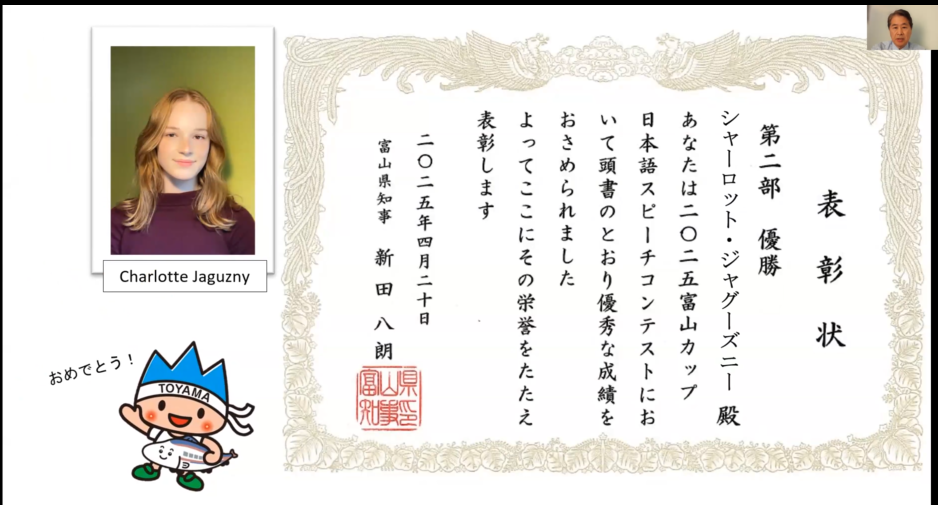 表彰状
第二部 優勝
シャーロット・ジャグーズニー 殿
あなたは二〇二五富山カップ
日本語スピーチコンテストにお
いて頭書のとおり優秀な成績を
おさめられました
よってここにその栄誉をたたえ
表彰します
二〇二五年四月二十日
富山県知事 新田八朗
富山県知事印
Charlotte Jaguzny
おめでとう！
TOYAMA